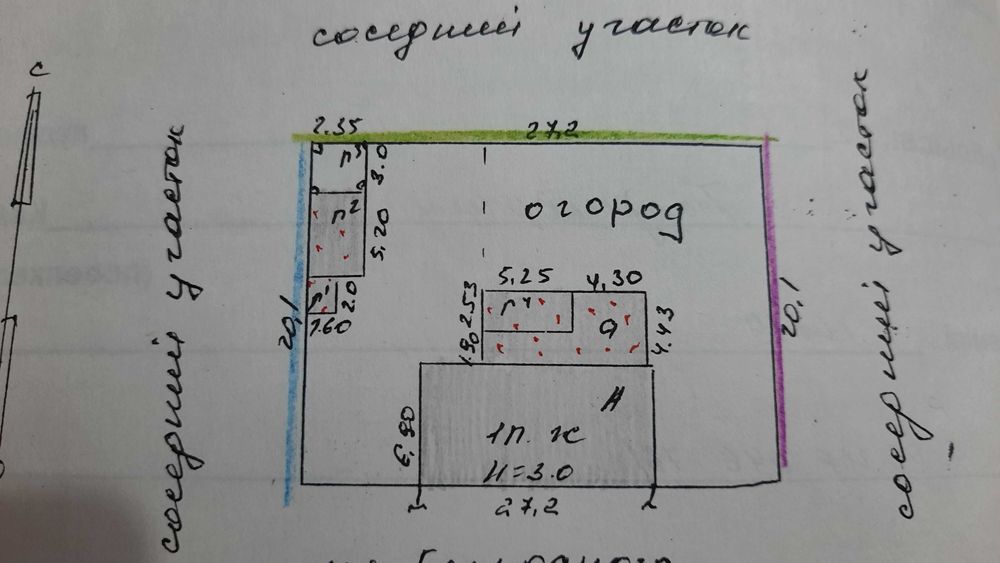 соседний участок
с
2.35
27,2
г3
3.0
огород
г2
5,20
соседний участок
соседний участок
5,25
4,30
г1
2.0
2.53
г4
а
20,1
20,1
1.60
1.90
4.43
А
6,90
1п. ж
Н=3.0
27,2